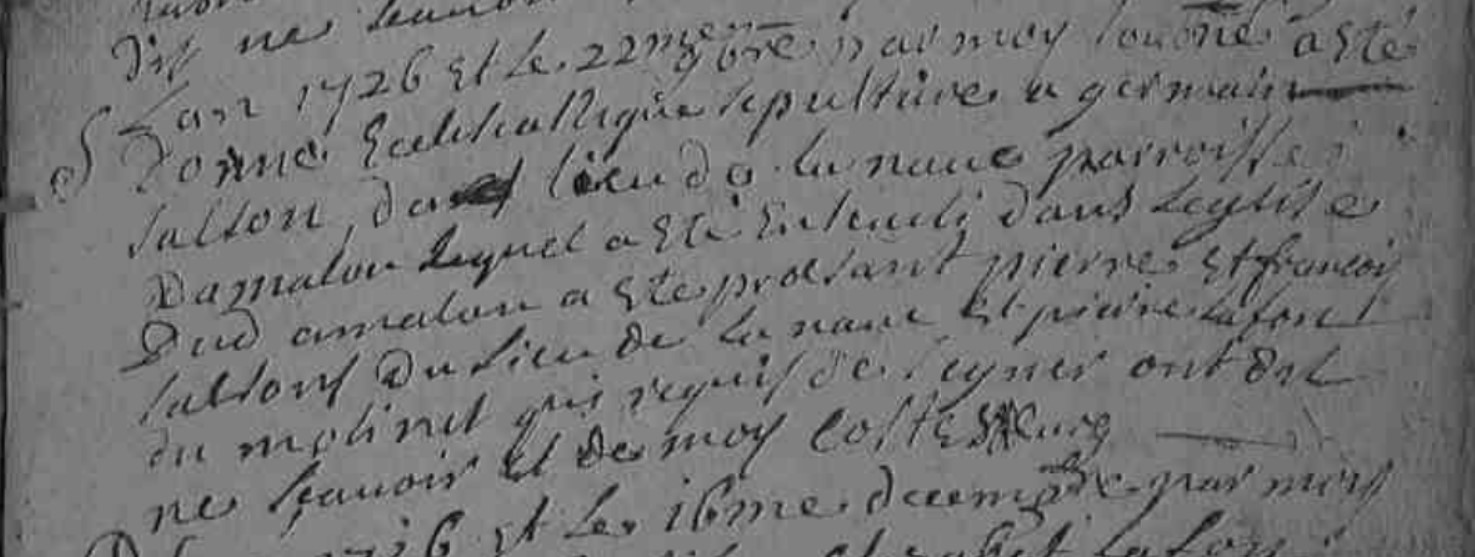 dit ne scauoir
Lan 1726 et le 22me 9bre par moy soubne a este
donne Ecclesiastique sepulture a germain
salson du lieu de la naue parroisse
Damalou lequel a este Enseueli dans leglise
Dud amalou a este presant pierre et francoy
salsons du lieu de la naue et pierre lafon
du molinet qui requis de signer ont dit
ne scauoir et de moy Costes Cure
1726 et le 16me decembre par moy